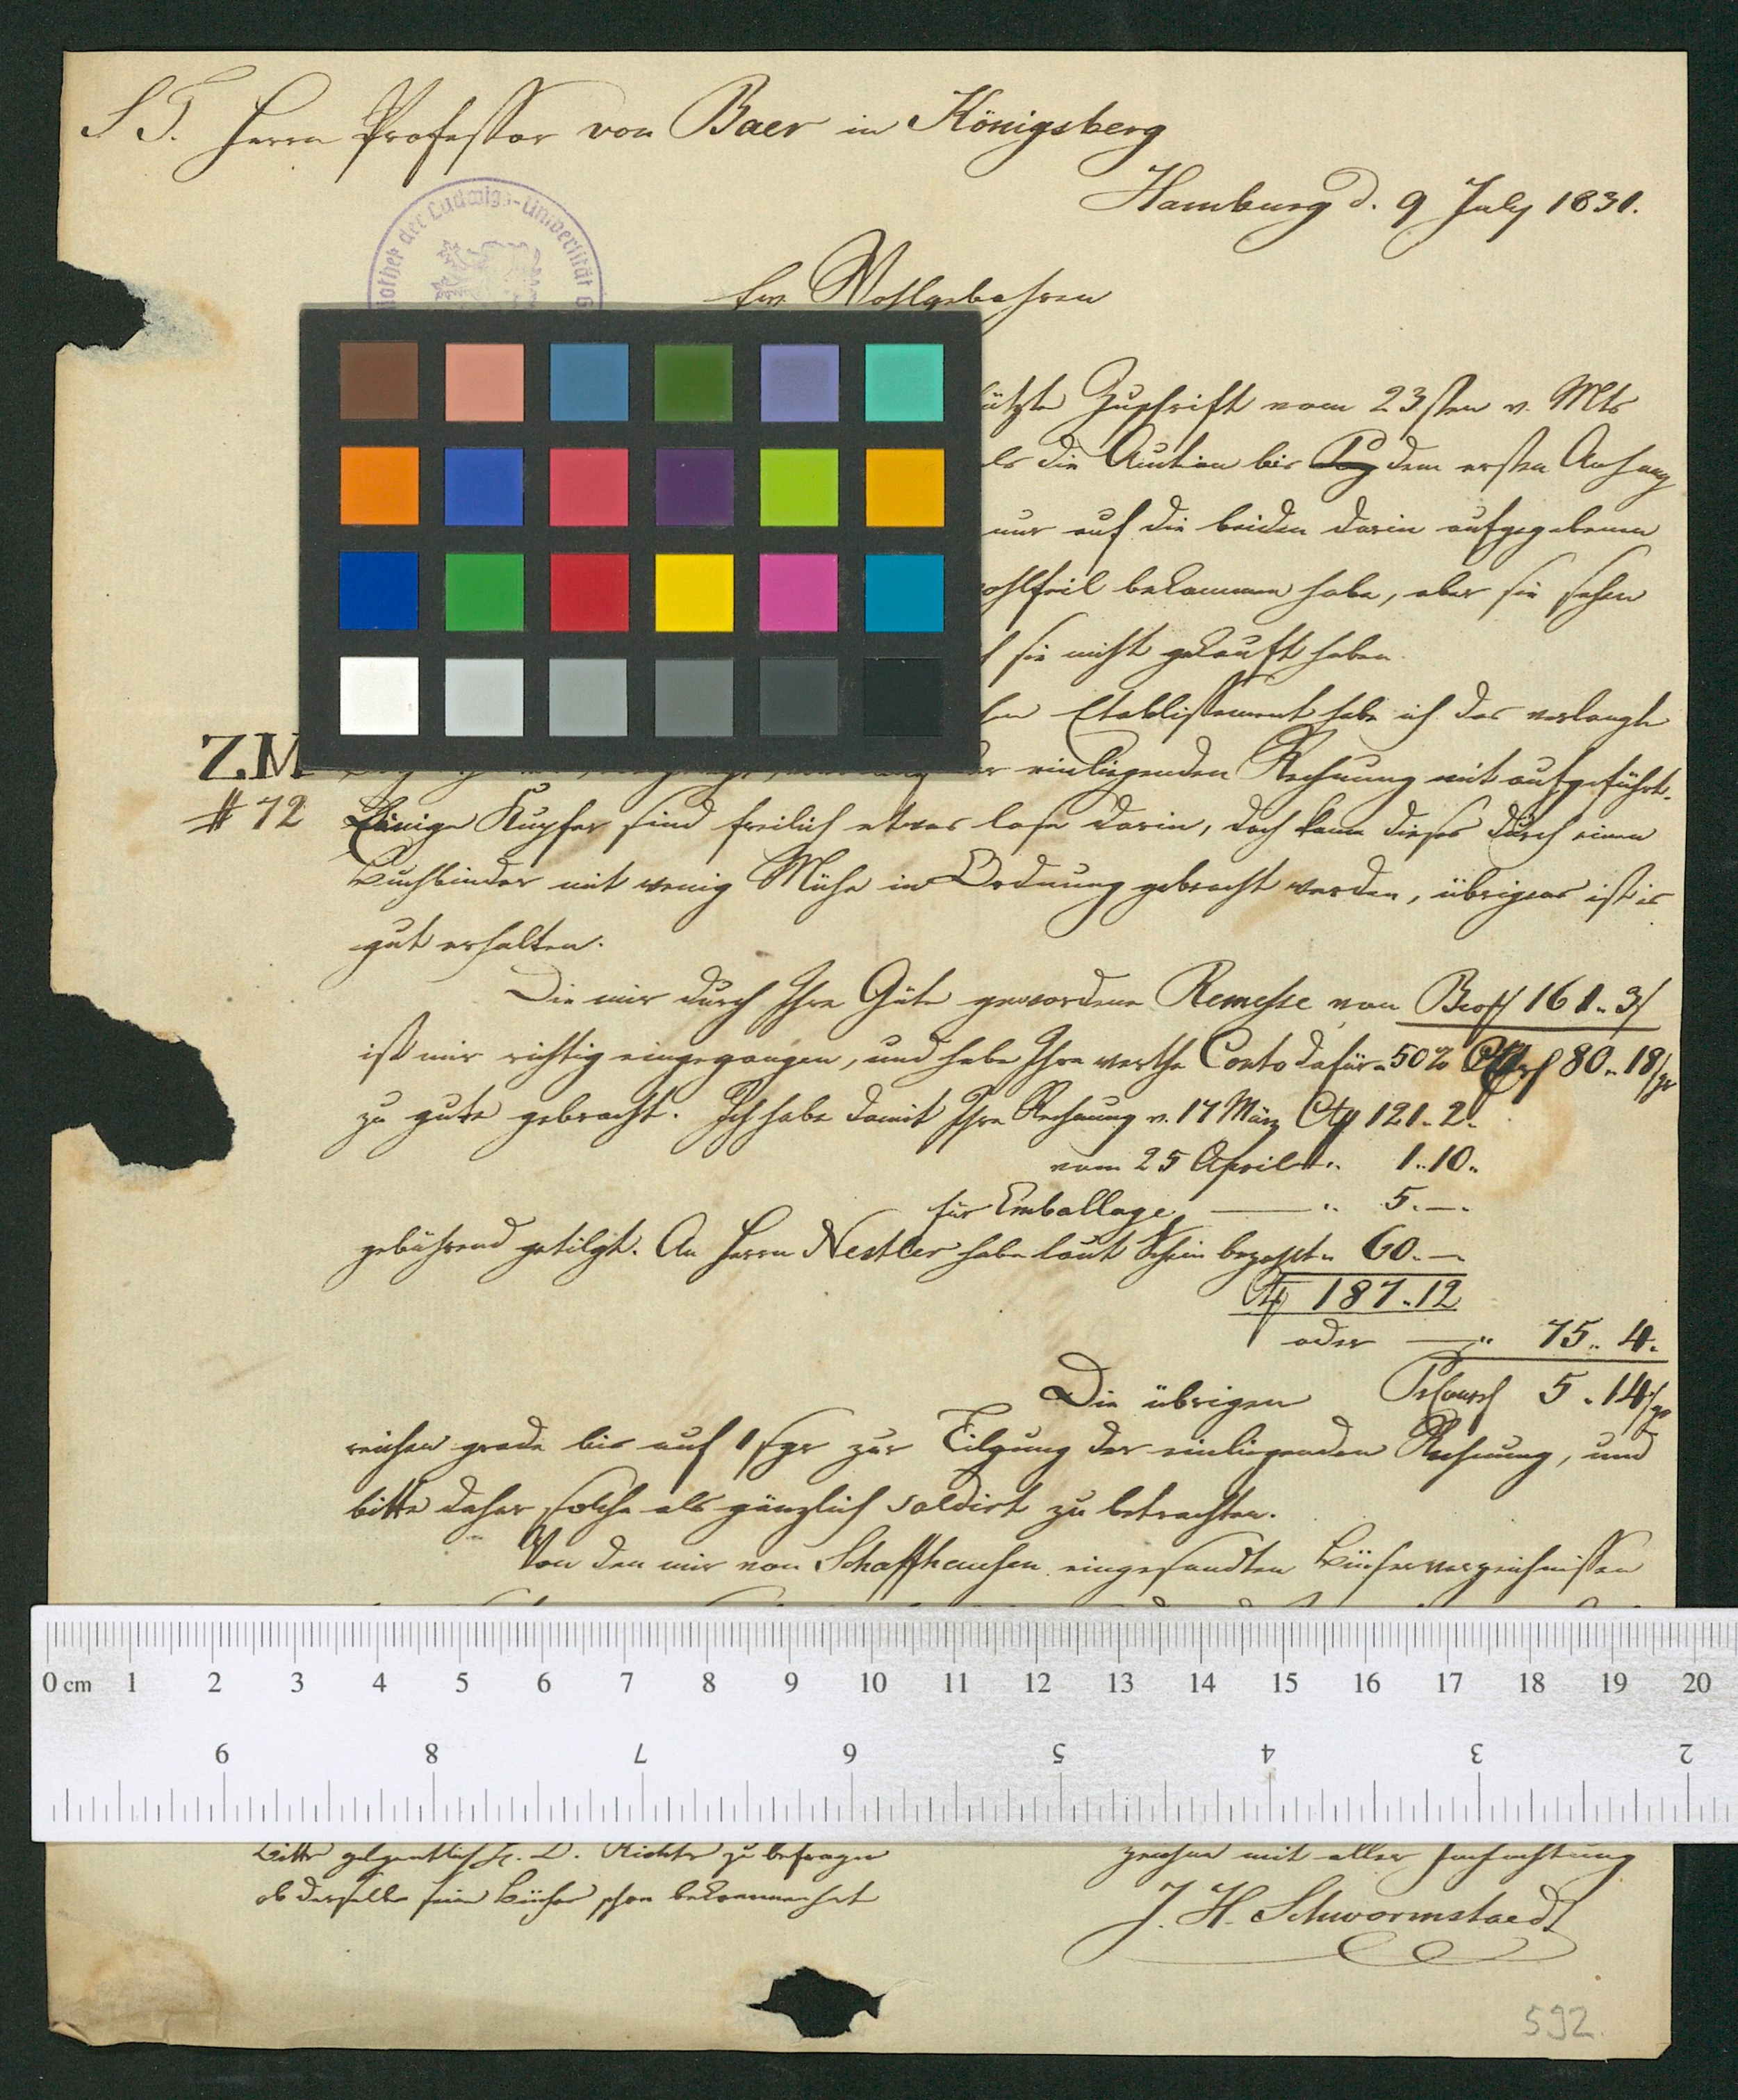 S T. Herrn Professor von Baer in Königsberg
Hamburg d. 9 July 1831.
Bibliothek der Ludwigs-Universität
Ew. Wohlgebohren
Zuschrift vom 23sten v. Mts
die Auction bis dem ersten Anhang
nur auf die beiden darin aufgegebenen
wohlfeil bekommen habe, aber sie sehen
sie nicht gekauft haben.
Etablissement habe ich das verlangte
einliegenden Rechnung mit aufgeführt.
Z.M
# 72
Einige Kupfer sind freilich etwas lose darin, doch kann dieses durch einen
Buchbinder mit wenig Mühe in Ordnung gebracht werden, übrigens ist es
gut erhalten.
Die mir durch Ihre Güte gewordene Remesse von 161.. 3
ist mir richtig eingegangen, und habe Ihre werthe Conto dafür a 50% 80.. 18
zu gute gebracht. Ich habe damit Ihre Rechnung v. 17 März 121.. 2..
vom 25 April .. 1.. 10..
für Emballage — .. 5. —.
gebührend getilgt. An Herrn Nestler habe laut Schein bezahlt .. 60.. —
187.. 12
oder — .. 75.. 4.
Die übrigen 5.. 14
reichen grade bis auf 1 sgr zur Tilgung der einliegenden Rechnung, und
bitte daher solche als gänzlich saldirt zu betrachten.
Von den mir von Schaffhausen eingesandten Bücherverzeichnissen
0 cm 1 2 3 4 5 6 7 8 9 10 11 12 13 14 15 16 17 18 19 20
9 8 7 6 5 4 3 2
Bitte gelegentlich H. D. Richter zu befragen
ob derselbe seine Bücher schon bekommen hat
zeichne mit aller Hochachtung
J. H. Schwormstaedt
592.